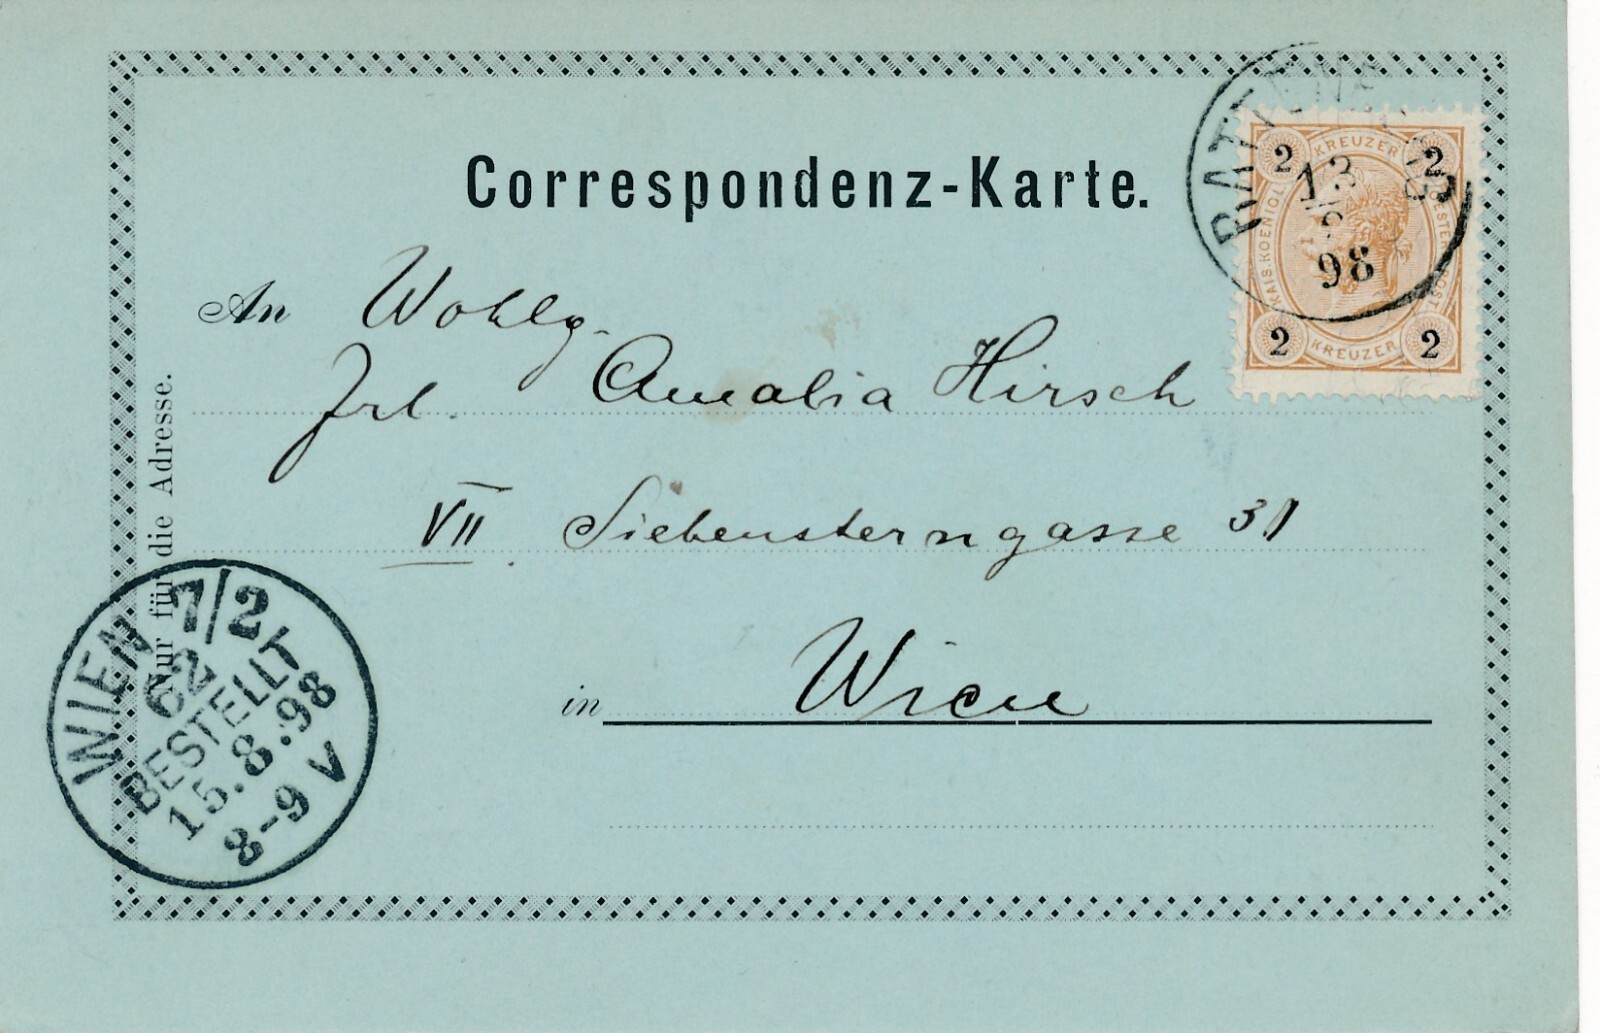 Correspondenz-Karte.
RATTENBERG
13
8
98
2 KREUZER 2
KAIS. KOENIGL. OESTERR. POST
2 KREUZER 2
An Wohlg.
Frl. Amalia Hirsch
VII. Siebensterngasse 31
in Wien
Nur für die Adresse.
WIEN 7/2
62
BESTELLT
15.8.98
8-9 V